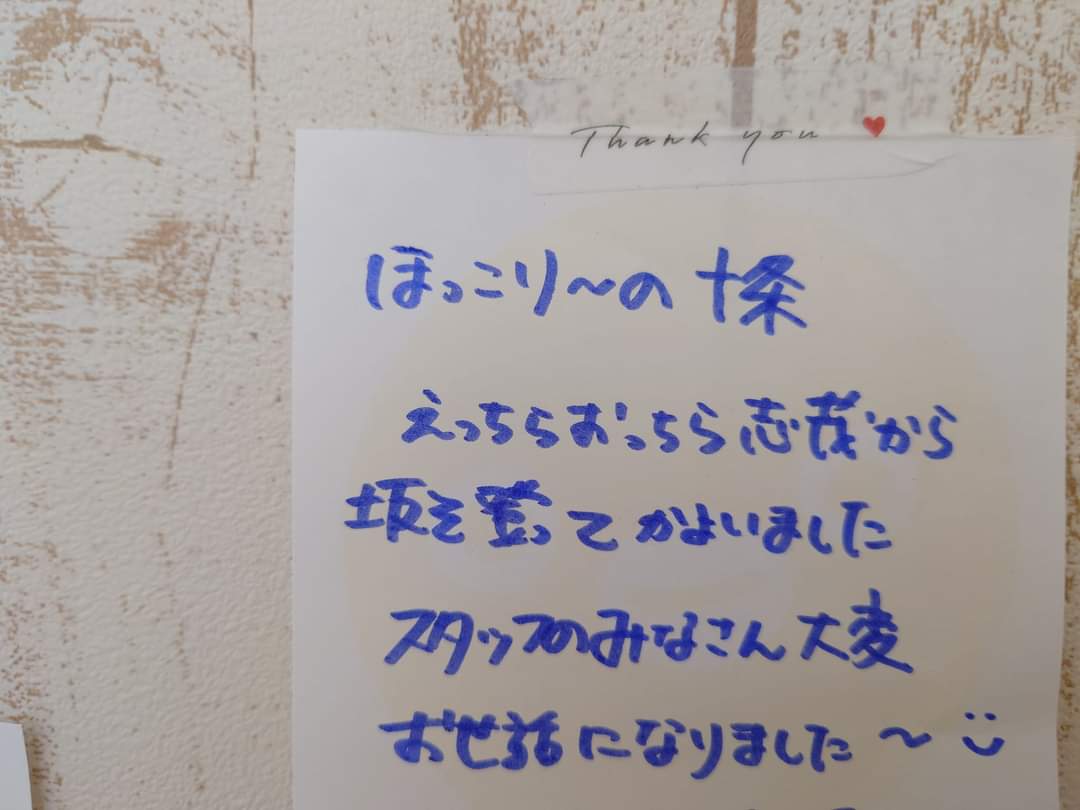 Thank you
ほっこり〜の 十条
えっちらおっちら 志茂から
坂を登って かよいました
スタッフのみなさん 大変
お世話になりました 〜